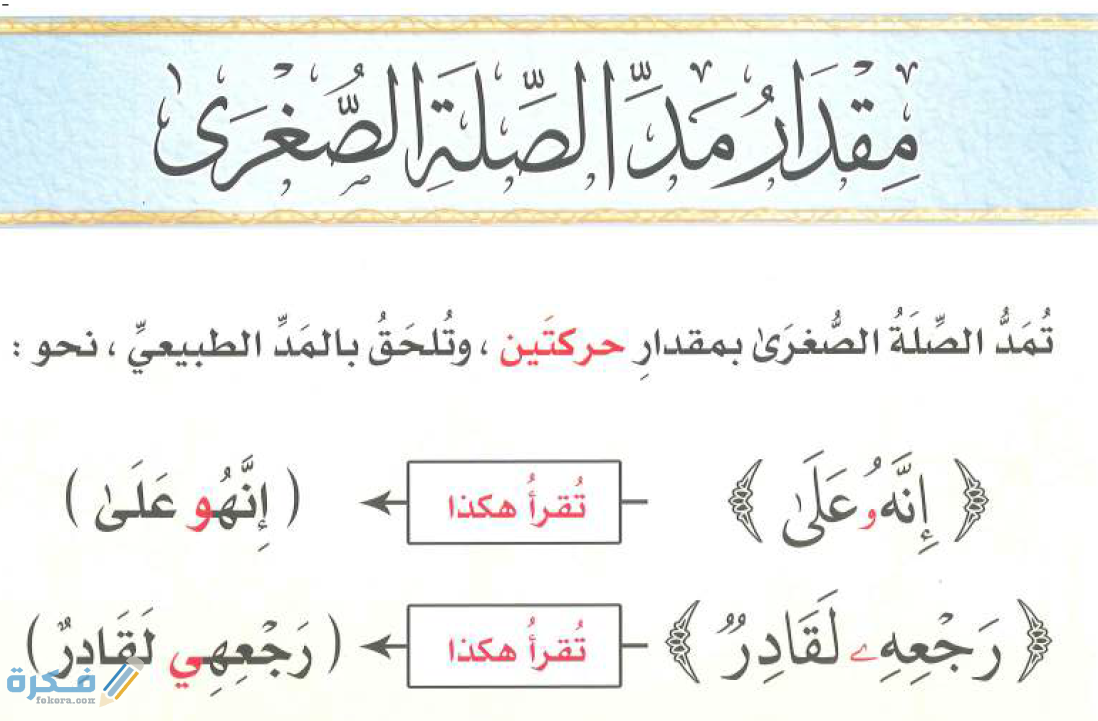 مِقْدَارُ مَدِّ الصِّلَةِ الصُّغْرَىٰ
تُمَدُّ الصِّلَةُ الصُّغرَىٰ بمقدارِ حركتَين ، وتُلحَقُ بالمَدِّ الطبيعيِّ ، نحو :
﴿ إِنَّهُۥ عَلَىٰ ﴾ تُقرأُ هكذا ( إِنَّهُو عَلَىٰ )
﴿ رَجْعِهِۦ لَقَادِرٌ ﴾ تُقرأُ هكذا ( رَجْعِهِي لَقَادِرٌ )
فكرة
fokora.com